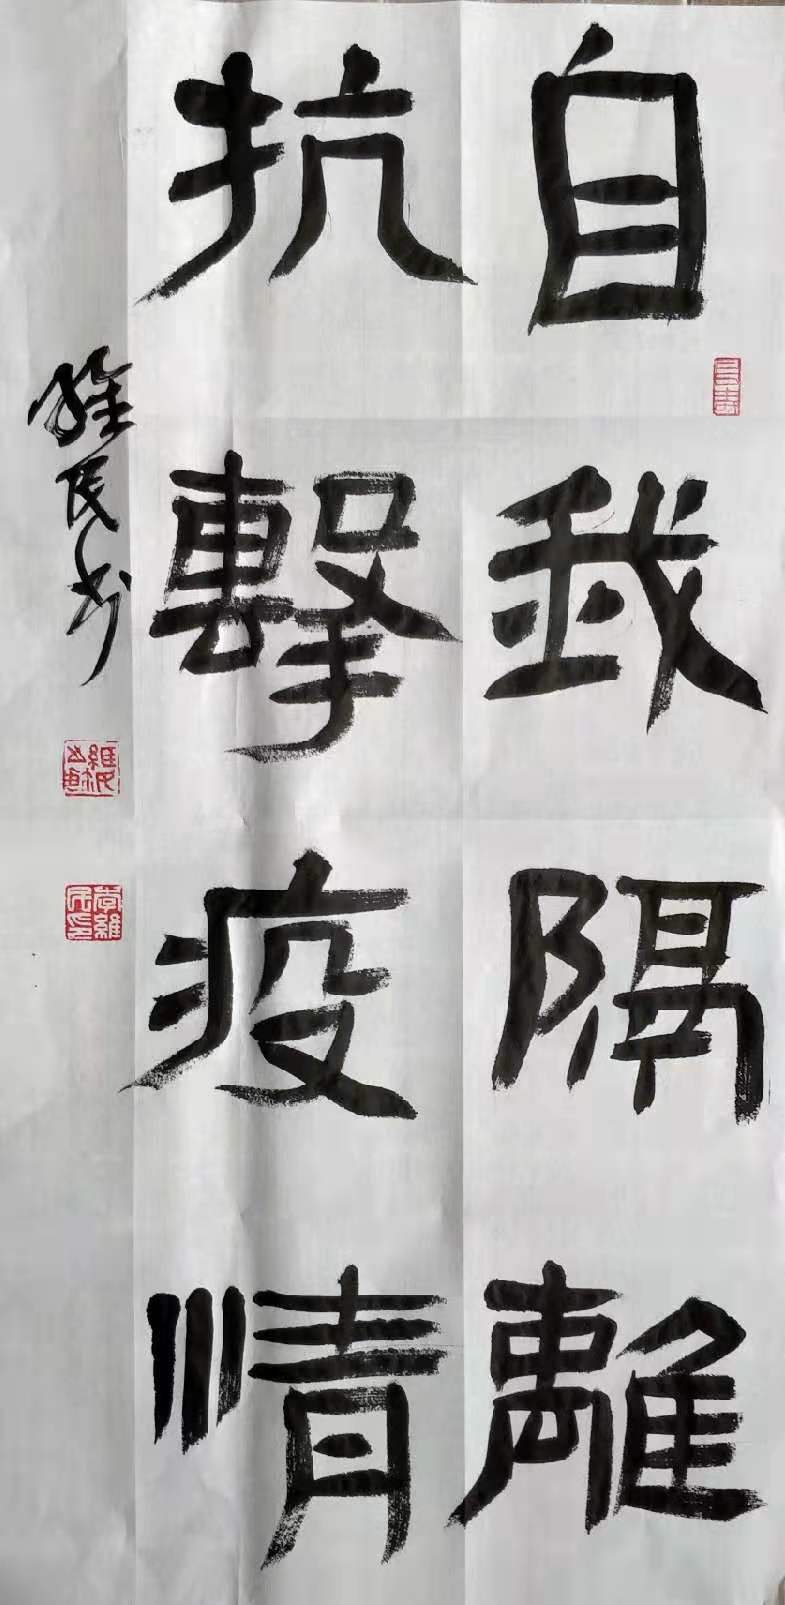 自我隔離
抗擊疫情
維民书